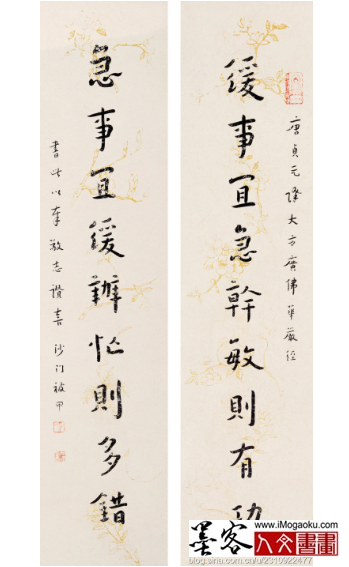 唐貞元譯大方廣佛華嚴經
緩事宜急幹敏則有功
急事宜緩辦忙則多錯
書此以奉敬志讚喜 沙门被甲
墨客
www.iMogaoku.com
人文書畫
blog.sina.com.cn/u/2310922477